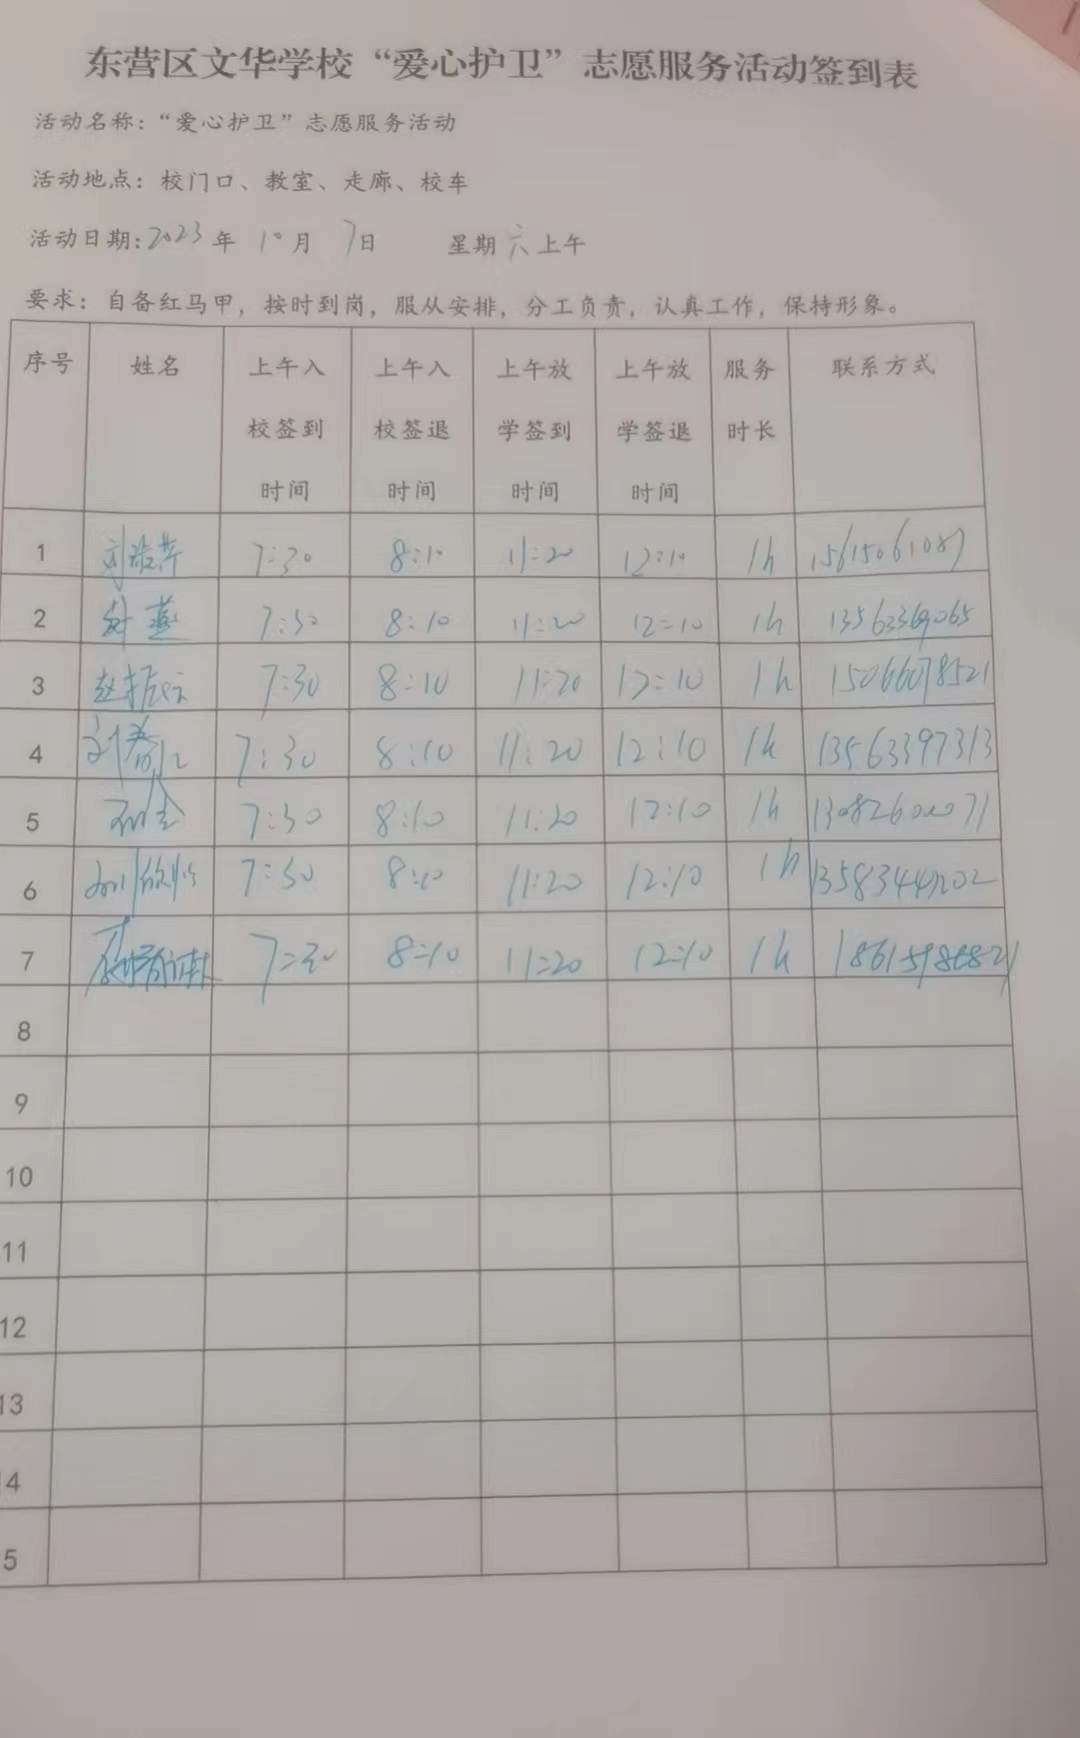 东营区文华学校“爱心护卫”志愿服务活动签到表
活动名称：“爱心护卫”志愿服务活动
活动地点：校门口、教室、走廊、校车
活动日期：2023年 10月 7日 星期六上午
要求：自备红马甲，按时到岗，服从安排，分工负责，认真工作，保持形象。
序号 姓名 上午入校签到时间 上午入校签退时间 上午放学签到时间 上午放学签退时间 服务时长 联系方式
1 7:30 8:10 11:20 12:10 1h 15615061087
2 7:30 8:10 11:20 12:10 1h 13563369065
3 7:30 8:10 11:20 12:10 1h 15066078521
4 7:30 8:10 11:20 12:10 1h 13563397313
5 7:30 8:10 11:20 12:10 1h
6 7:30 8:10 11:20 12:10 1h
7 7:30 8:10 11:20 12:10 1h
8
9
10
11
12
13
4
5